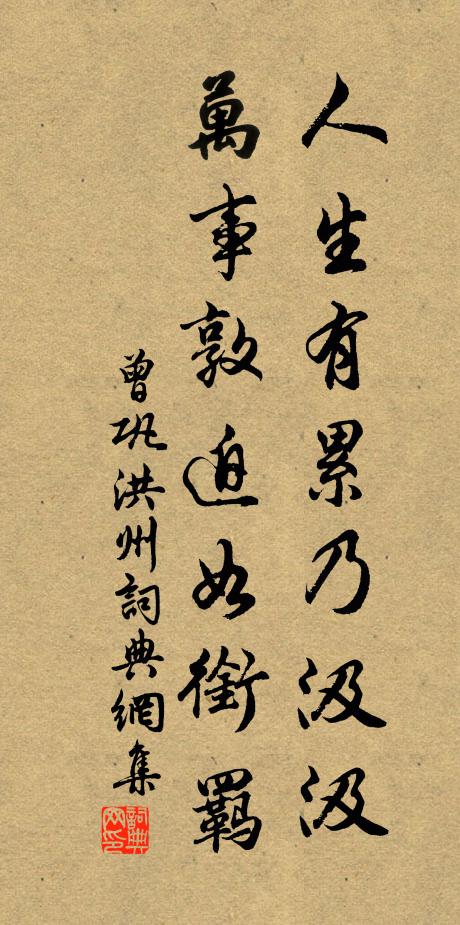 人生有累乃汲汲
萬事敦迫如銜羈
曾巩洪州詞典網集
詞典网印